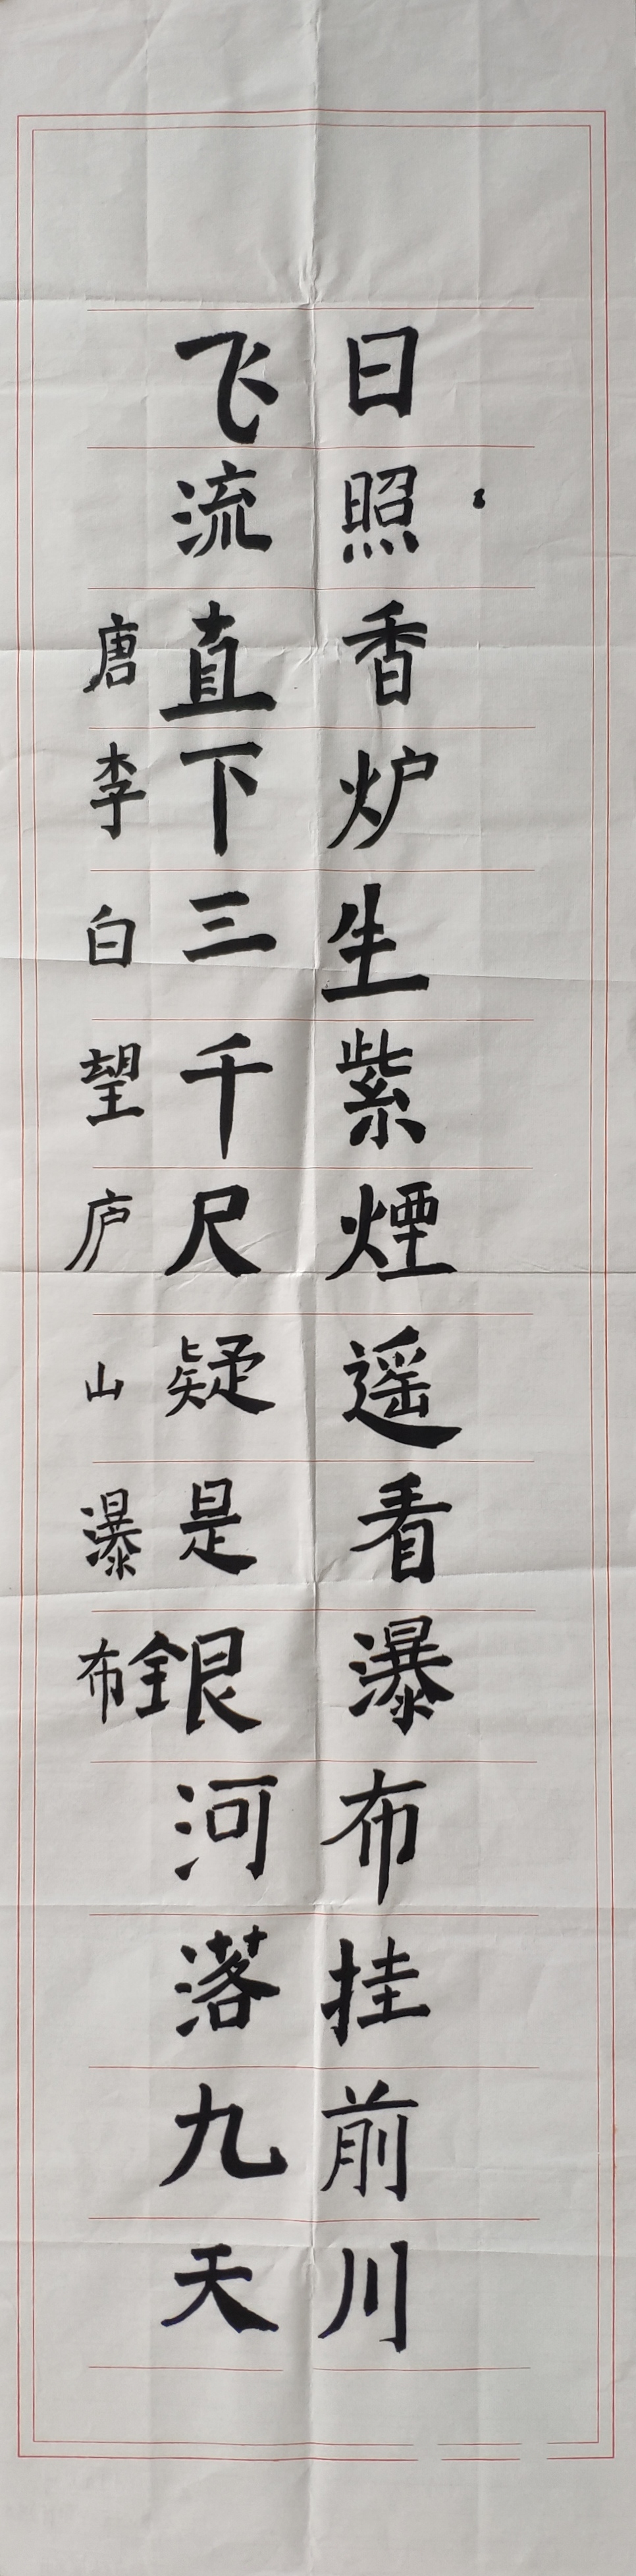 日照香炉生紫煙遥看瀑布挂前川
飞流直下三千尺疑是銀河落九天
唐李白望庐山瀑布